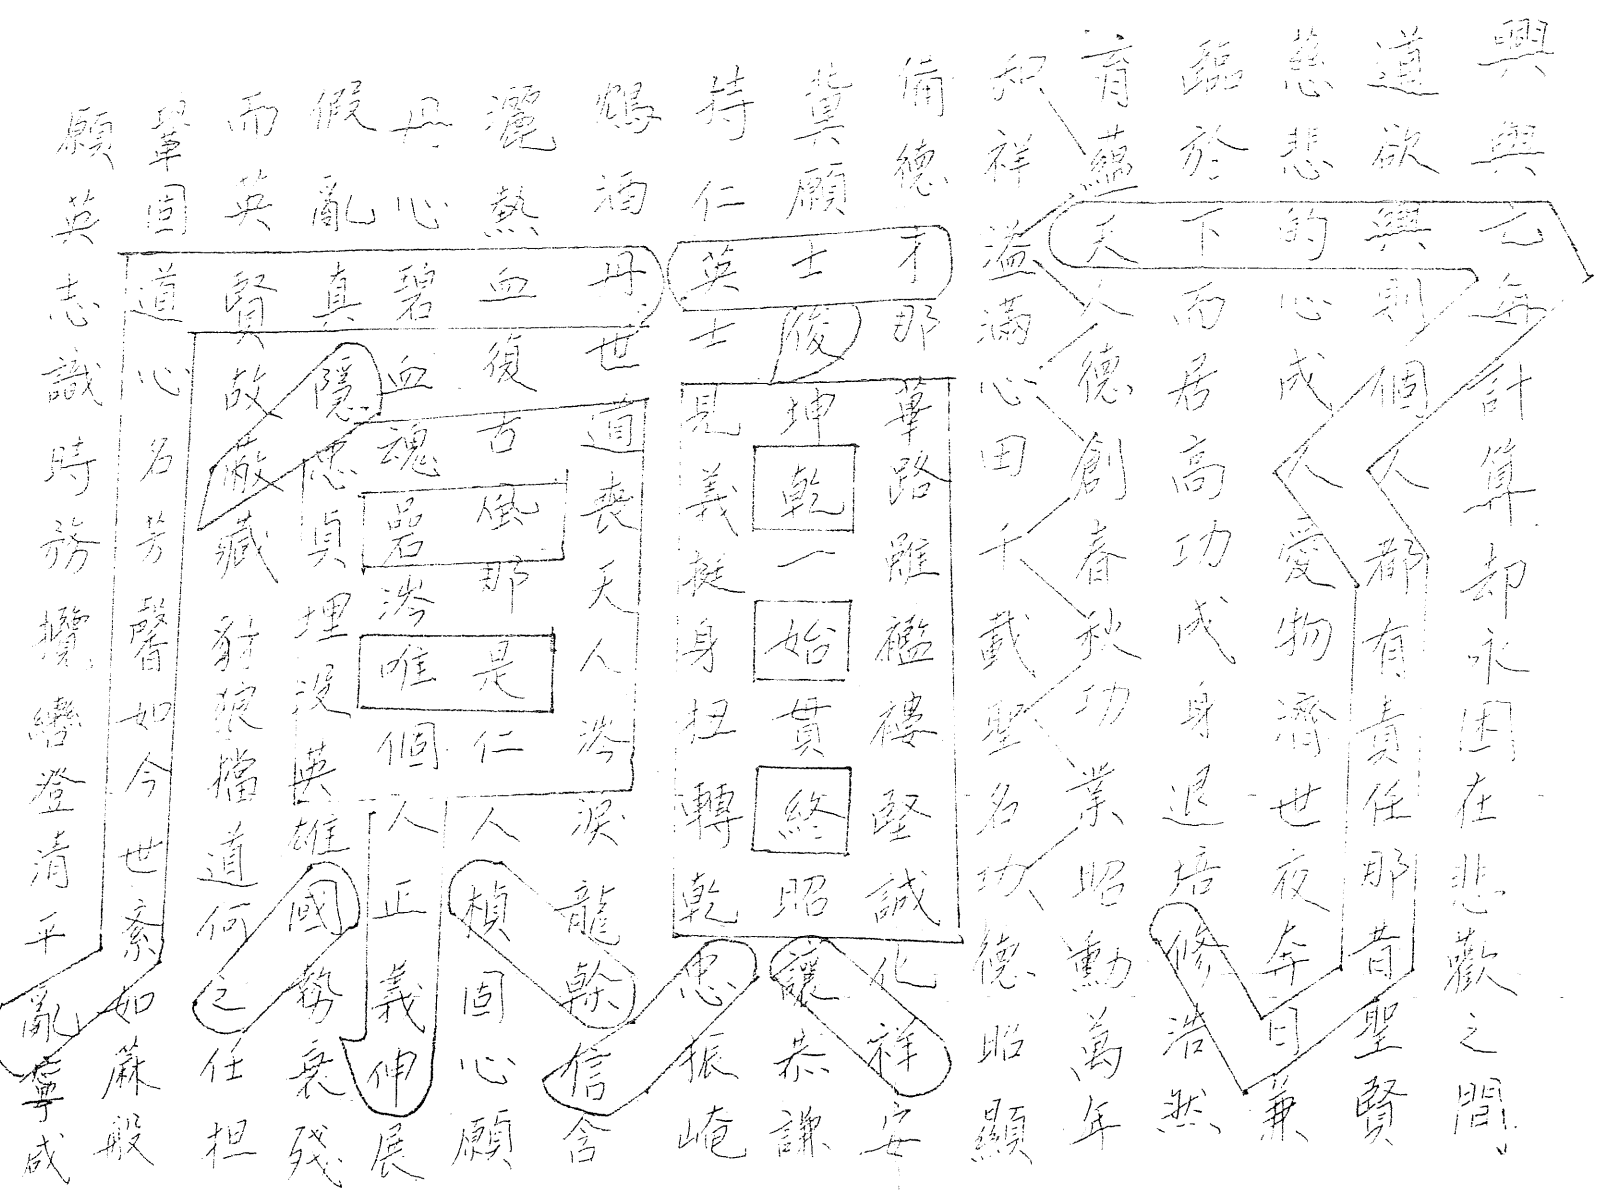 興與亡每計算却永困在悲歡之間、
道欲興則個人都有責任那昔聖賢
慈悲的心成人愛物濟世夜奔日兼
臨於下而居高功成身退培修浩然
育蘊天人德創春秋功業昭勳萬年
和祥溢滿心田千載聖名功德昭顯
備德才那蓽路雖襤褸堅誠化祥安
冀願士俊坤乾一始貫終昭讓恭謙
持仁英士見義挺身扭轉乾忠振崦
鴆酒丹世道喪天人涔淚龍榦信含
灑熱血復古風那是仁人楨固心願
丹心碧血魂喦涔唯個人正義伸展
假亂真隱忠貞埋沒英雄國勢衰殘
而英賢故蔽藏豺狼擋道何之任担
鞏固道心名芳馨如今世紊如蔴般
願英志識時務攬轡登清平亂寧咸